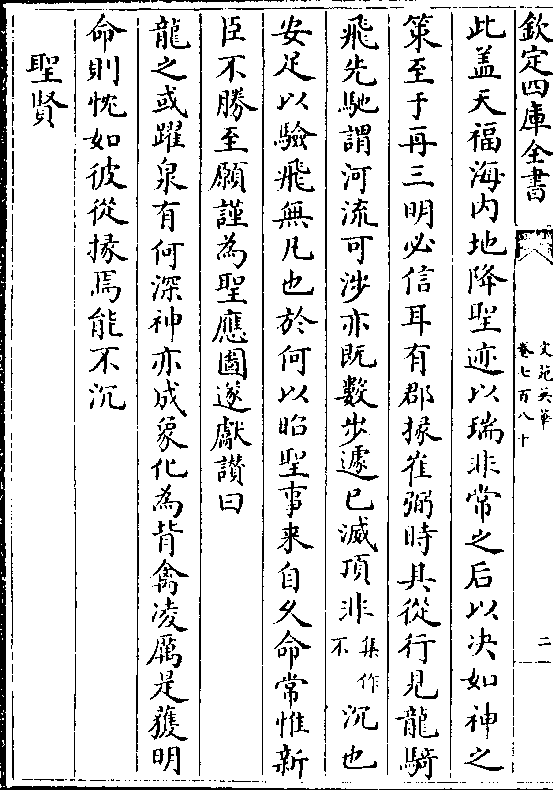 欽定四庫全書
文苑英華
卷七百八十
二
此盖天福海内地降聖迹以瑞非常之后以决如神之
䇿至于再三明必信耳有郡掾崔弼時具從行見龍騎
飛先馳謂河流可涉亦既數步遽已滅頂非集作不沉也
安足以驗飛無凡也於何以昭聖事来自久命常惟新
臣不勝至願謹為聖應圖遂獻讃曰
龍之或躍泉有何深神亦成象化為背禽凌厲是獲明
命則怳如彼從掾焉能不沉
聖賢